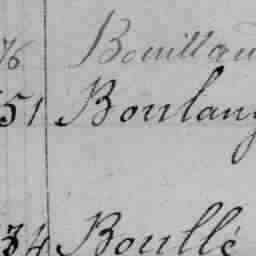 76 Bouillau
51 Boulang
34 Boullé